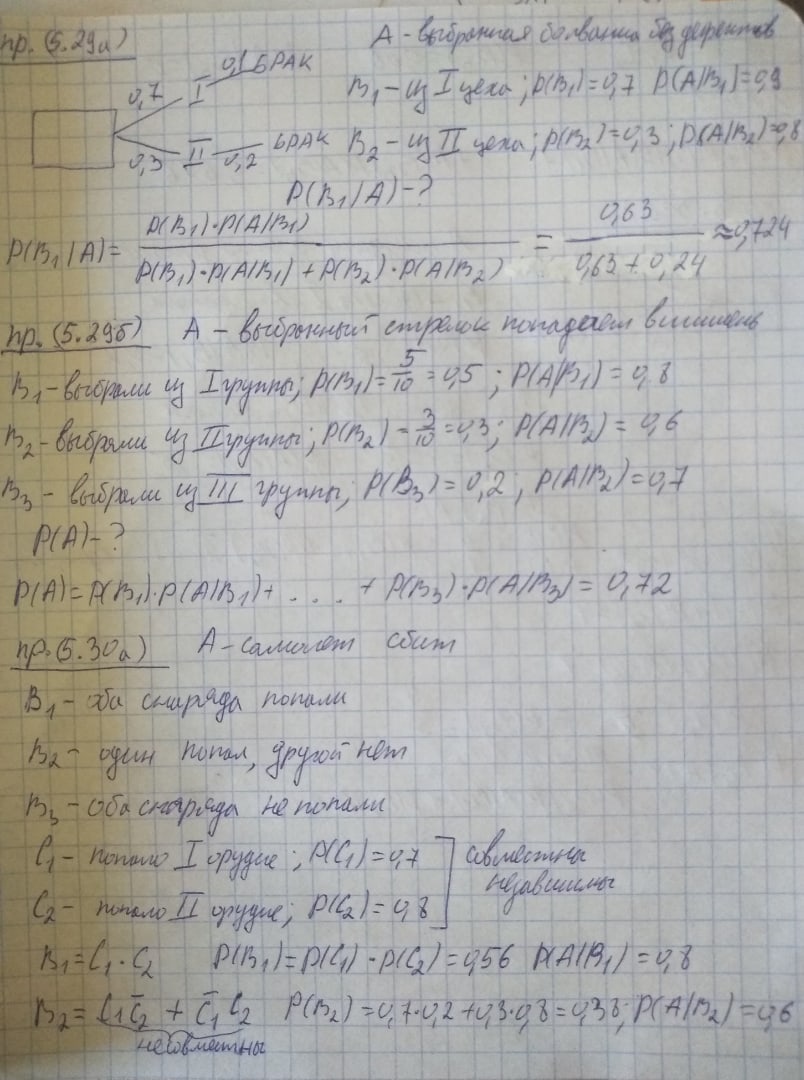 пр. (5.29а) А - выбранная болванка без дефектов
0,7 I 0,1 БРАК
B₁ - из I цеха; P(B₁)=0,7 P(A|B₁)=0,9
0,3 II 0,2 БРАК
B₂ - из II цеха; P(B₂)=0,3; P(A|B₂)=0,8
P(B₁|A) - ?
P(B₁|A) = P(B₁)·P(A|B₁) / P(B₁)·P(A|B₁) + P(B₂)·P(A|B₂) = 0,63 / 0,63 + 0,24 ≈ 0,724
пр. (5.29б) А - выбранный стрелок попадает в мишень
B₁ - выбрали из I группы; P(B₁) = 5/10 = 0,5; P(A|B₁) = 0,8
B₂ - выбрали из II группы; P(B₂) = 3/10 = 0,3; P(A|B₂) = 0,6
B₃ - выбрали из III группы; P(B₃) = 0,2; P(A|B₂) = 0,7
P(A) - ?
P(A) = P(B₁)·P(A|B₁) + . . . . + P(B₃)·P(A|B₃) = 0,72
пр. (5.30а) А - самолет сбит
B₁ - оба снаряда попали
B₂ - один попал, другой нет
B₃ - оба снаряда не попали
C₁ - попало I орудие; P(C₁) = 0,7
C₂ - попало II орудие; P(C₂) = 0,8
совместны
независимы
B₁ = C₁·C₂ P(B₁) = P(C₁)·P(C₂) = 0,56 P(A|B₁) = 0,8
B₂ = C₁C̄₂ + C̄₁C₂ P(B₂) = 0,7·0,2 + 0,3·0,8 = 0,38; P(A|B₂) = 0,6
несовместны